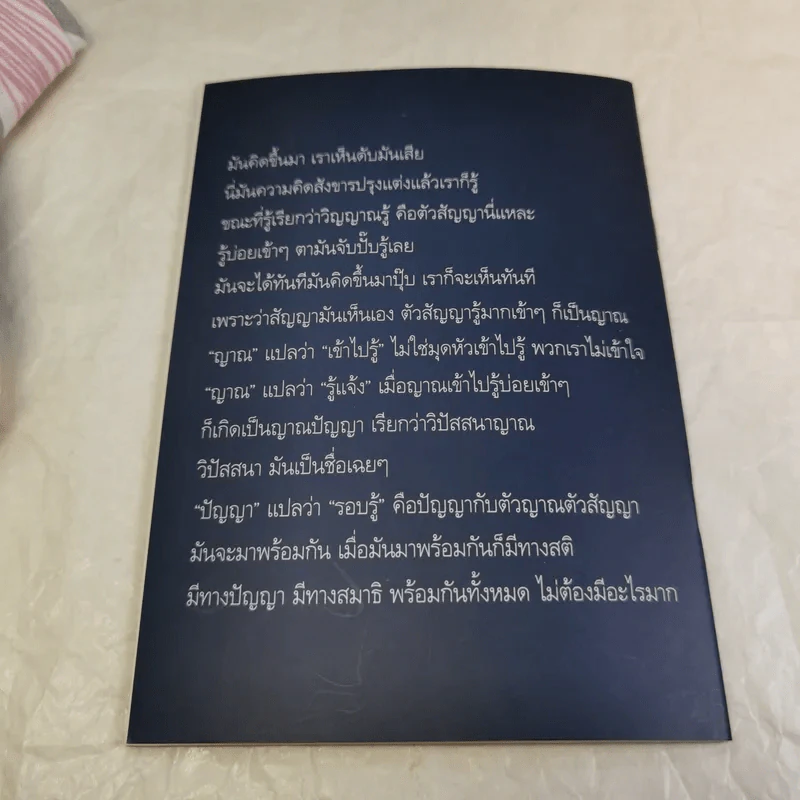 มันคิดขึ้นมา เราเห็นดับมันเสีย
นี่มันความคิดสังขารปรุงแต่งแล้วเราก็รู้
ขณะที่รู้เรียกว่าวิญญาณรู้ คือตัวสัญญานี่แหละ
รู้บ่อยเข้าๆ ตามันจับปั๊บรู้เลย
มันจะได้ทันทีมันคิดขึ้นมาปุ๊บ เราก็จะเห็นทันที
เพราะว่าสัญญามันเห็นเอง ตัวสัญญารู้มากเข้าๆ ก็เป็นญาณ
“ญาณ” แปลว่า “เข้าไปรู้” ไม่ใช่มุดหัวเข้าไปรู้ พวกเราไม่เข้าใจ
“ญาณ” แปลว่า “รู้แจ้ง” เมื่อญาณเข้าไปรู้บ่อยเข้าๆ
ก็เกิดเป็นญาณปัญญา เรียกว่าวิปัสสนาญาณ
วิปัสสนา มันเป็นชื่อเฉยๆ
“ปัญญา” แปลว่า “รอบรู้” คือปัญญากับตัวญาณตัวสัญญา
มันจะมาพร้อมกัน เมื่อมันมาพร้อมกันก็มีทางสติ
มีทางปัญญา มีทางสมาธิ พร้อมกันทั้งหมด ไม่ต้องมีอะไรมาก